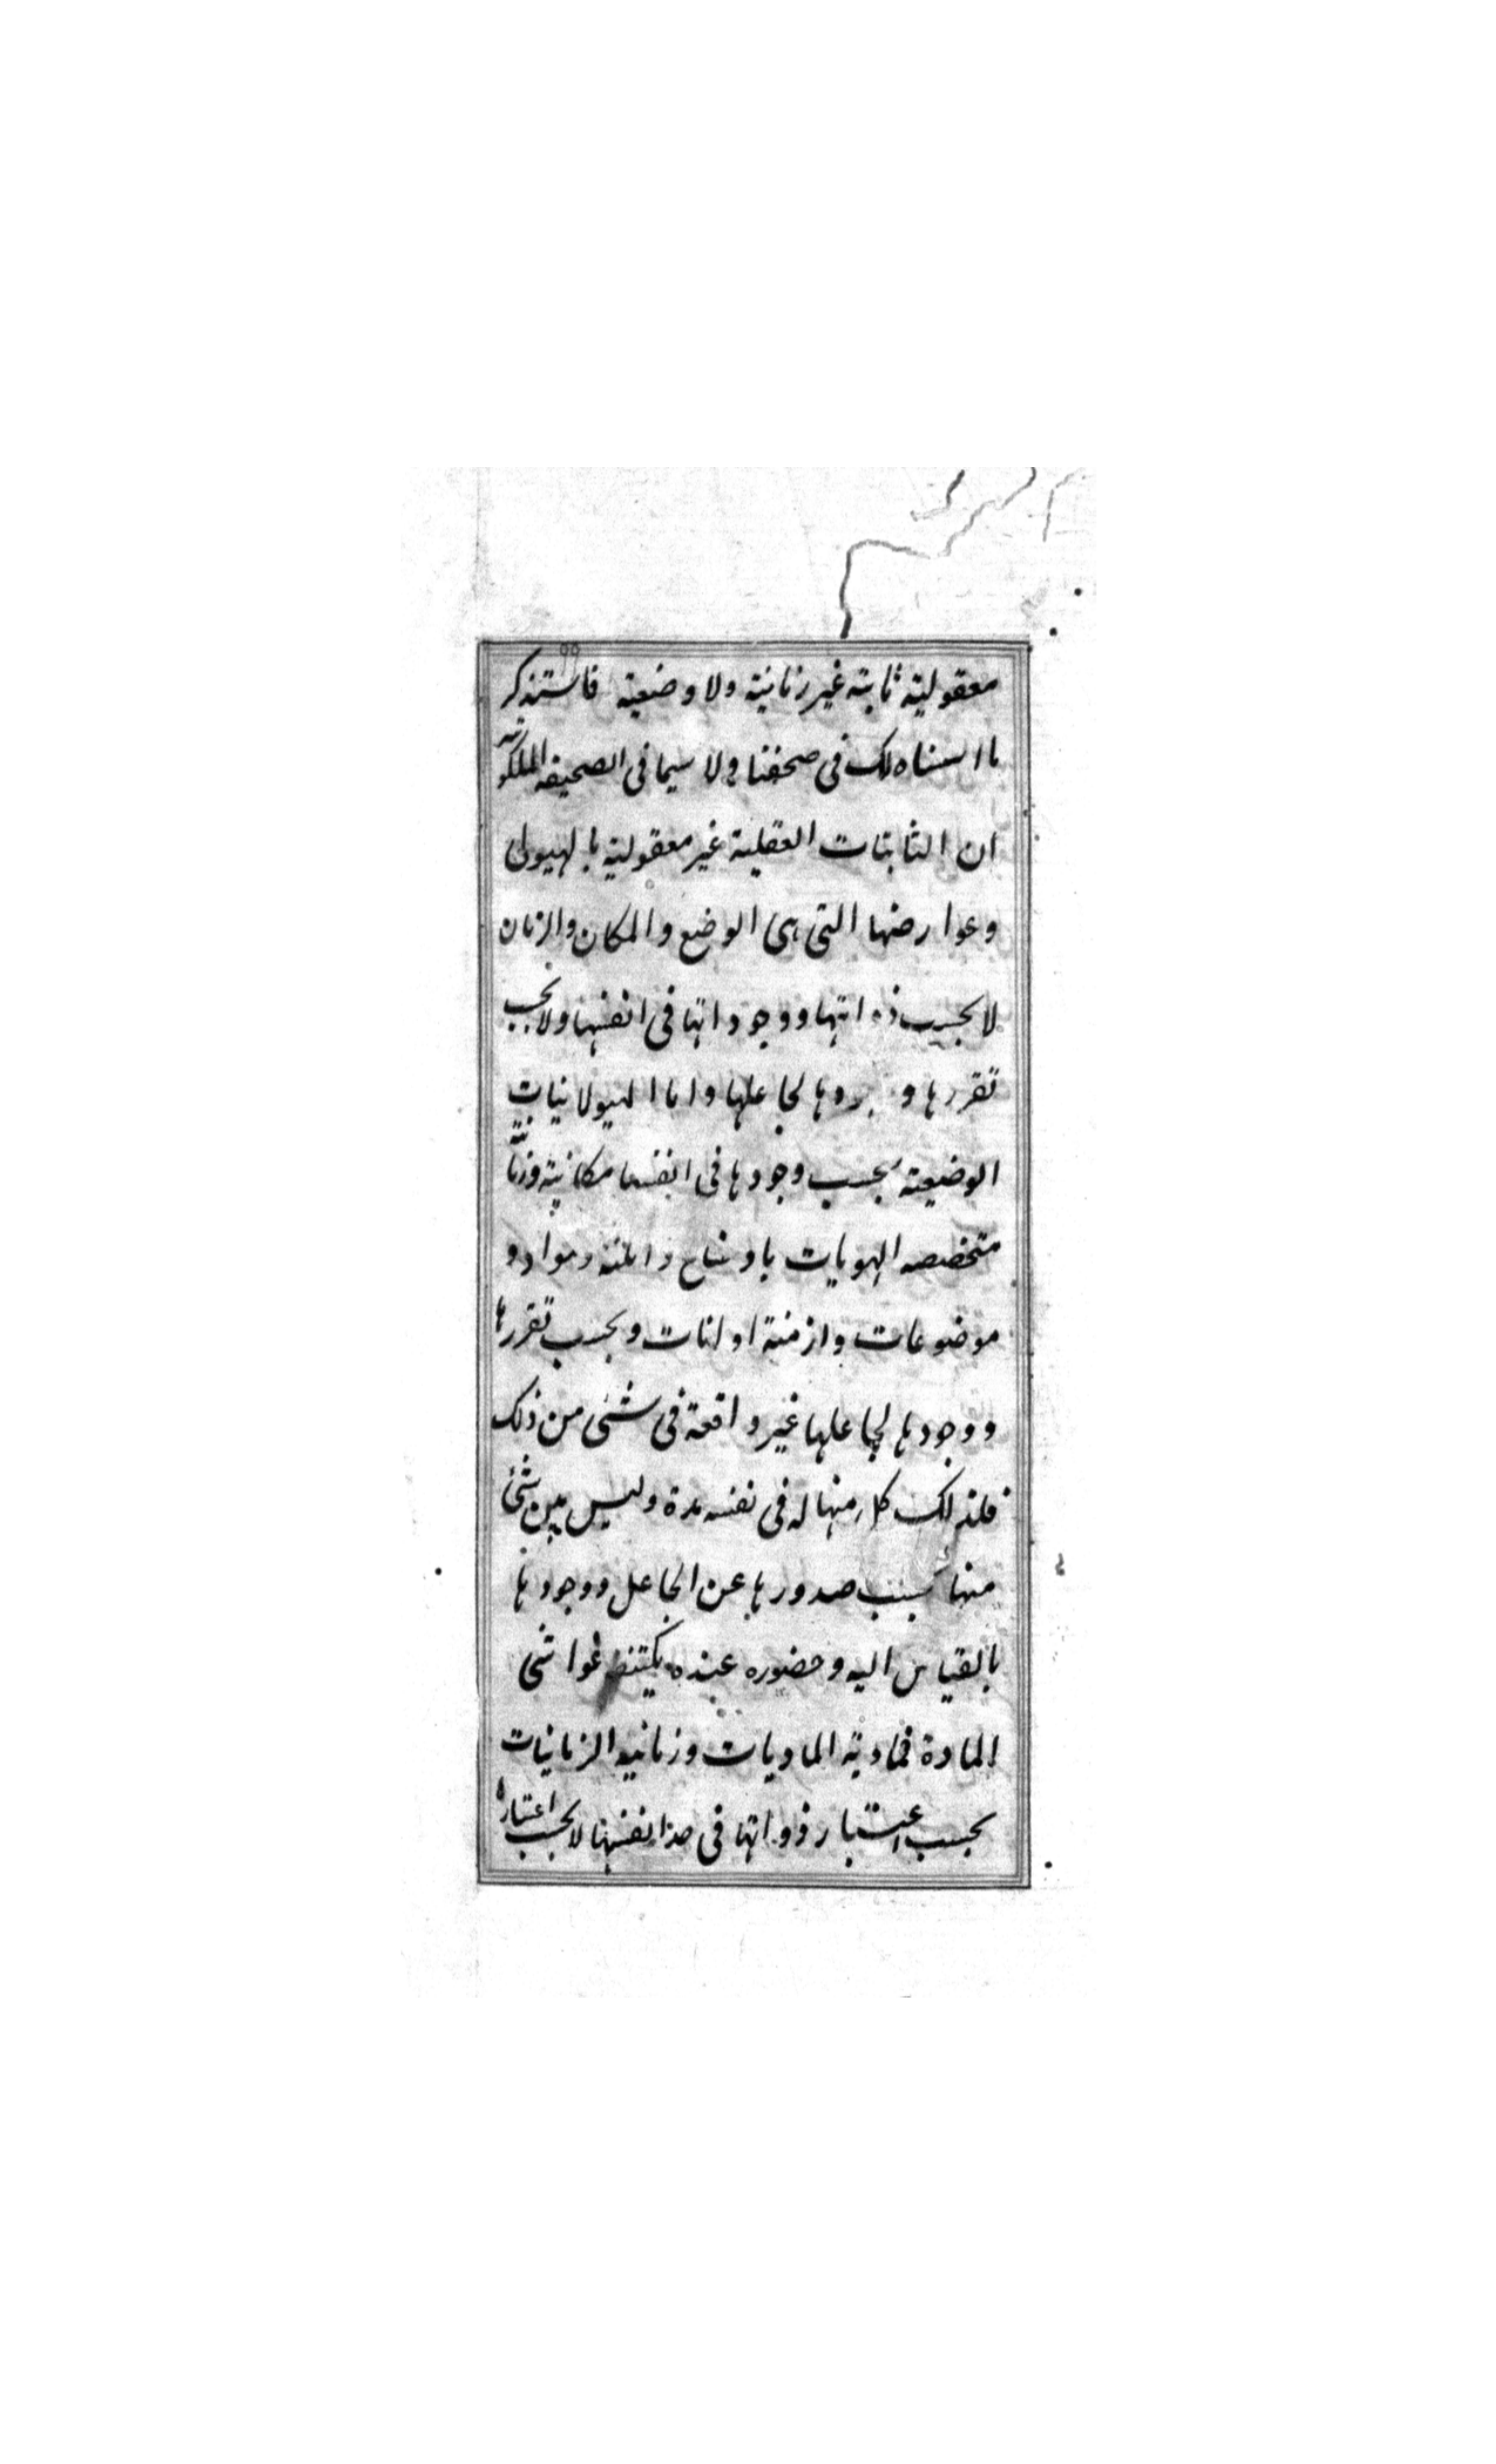 معقولية ثابتة غير زمانية ولا وضعية فاستذكر
ما اسسناه لك في صحفنا ولا سيما في الصحيفة الملكوتية
ان الثابتات العقلية غير معقولية بالهيولى
وعوارضها التي هي الوضع والمكان والزمان
لا بحسب ذواتها ووجوداتها في انفسها ولا بحسب
تقررها و لجاعلها واما الهيولانيات
الوضعية بحسب وجودها في انفسها مكانية وزمانية
متخصصه الهويات باوضاع وامكنة ومواد و
موضوعات وازمنة او انات وبحسب تقررها
ووجودها لجاعلها غير واقعة في شئ من ذلك
فلذلك كل منها له في نفسه مدة وليس بين شئ
منها بحسب صدورها عن الجاعل ووجودها
بالقياس اليه وحضوره عنده يكتنفه غواشي
المادة فمادية الماديات وزمانية الزمانيات
بحسب اعتبار ذواتها في حد انفسها لا بحسب اعتبارها